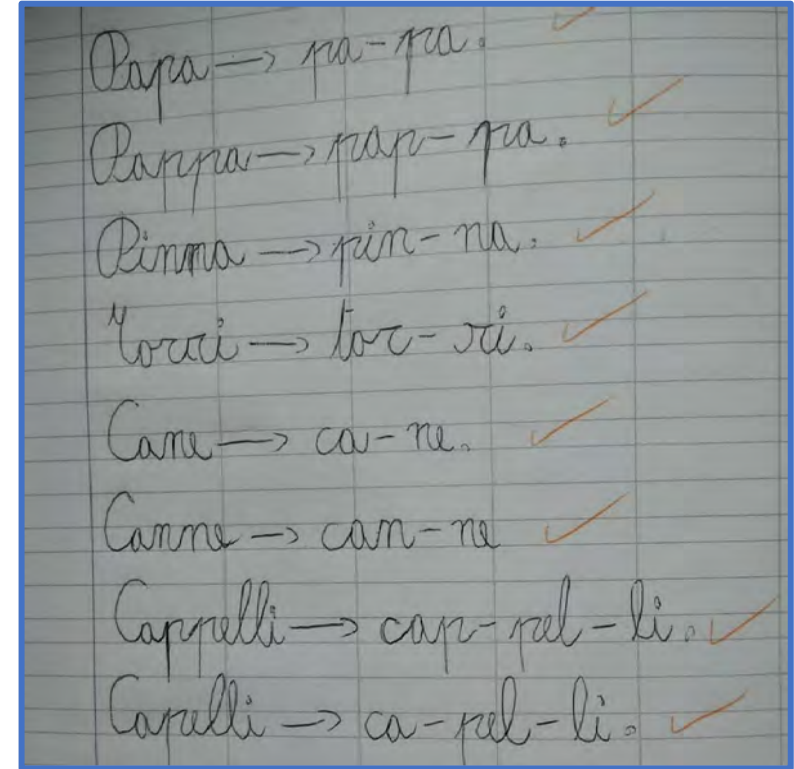 Papa → pa-pa.
Pappa → pap-pa.
Pinna → pin-na.
Torri → tor-ri.
Cane → ca-ne.
Canne → can-ne
Cappelli → cap-pel-li.
Capelli → ca-pel-li.